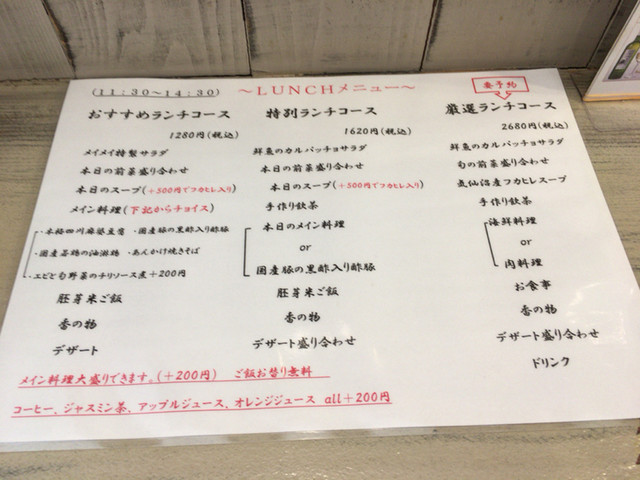 (11:30～14:30)
～LUNCHメニュー～
要予約
おすすめランチコース
1280円(税込)
メイメイ特製サラダ
本日の前菜盛り合わせ
本日のスープ(+500円でフカヒレ入り)
メイン料理(下記からチョイス)
・本格四川麻婆豆腐 ・国産豚の黒酢入り酢豚
・国産若鶏の油淋鶏 ・あんかけ焼きそば
・エビと旬野菜のチリソース煮+200円
胚芽米ご飯
香の物
デザート
特別ランチコース
1620円(税込)
鮮魚のカルパッチョサラダ
本日の前菜盛り合わせ
本日のスープ(+500円でフカヒレ入り)
手作り飲茶
本日のメイン料理
or
国産豚の黒酢入り酢豚
胚芽米ご飯
香の物
デザート盛り合わせ
厳選ランチコース
2680円(税込)
鮮魚のカルパッチョサラダ
旬の前菜盛り合わせ
気仙沼産フカヒレスープ
手作り飲茶
海鮮料理
or
肉料理
お食事
香の物
デザート盛り合わせ
ドリンク
メイン料理大盛りできます。(+200円) ご飯お替り無料
コーヒー、ジャスミン茶、アップルジュース、オレンジジュース all+200円